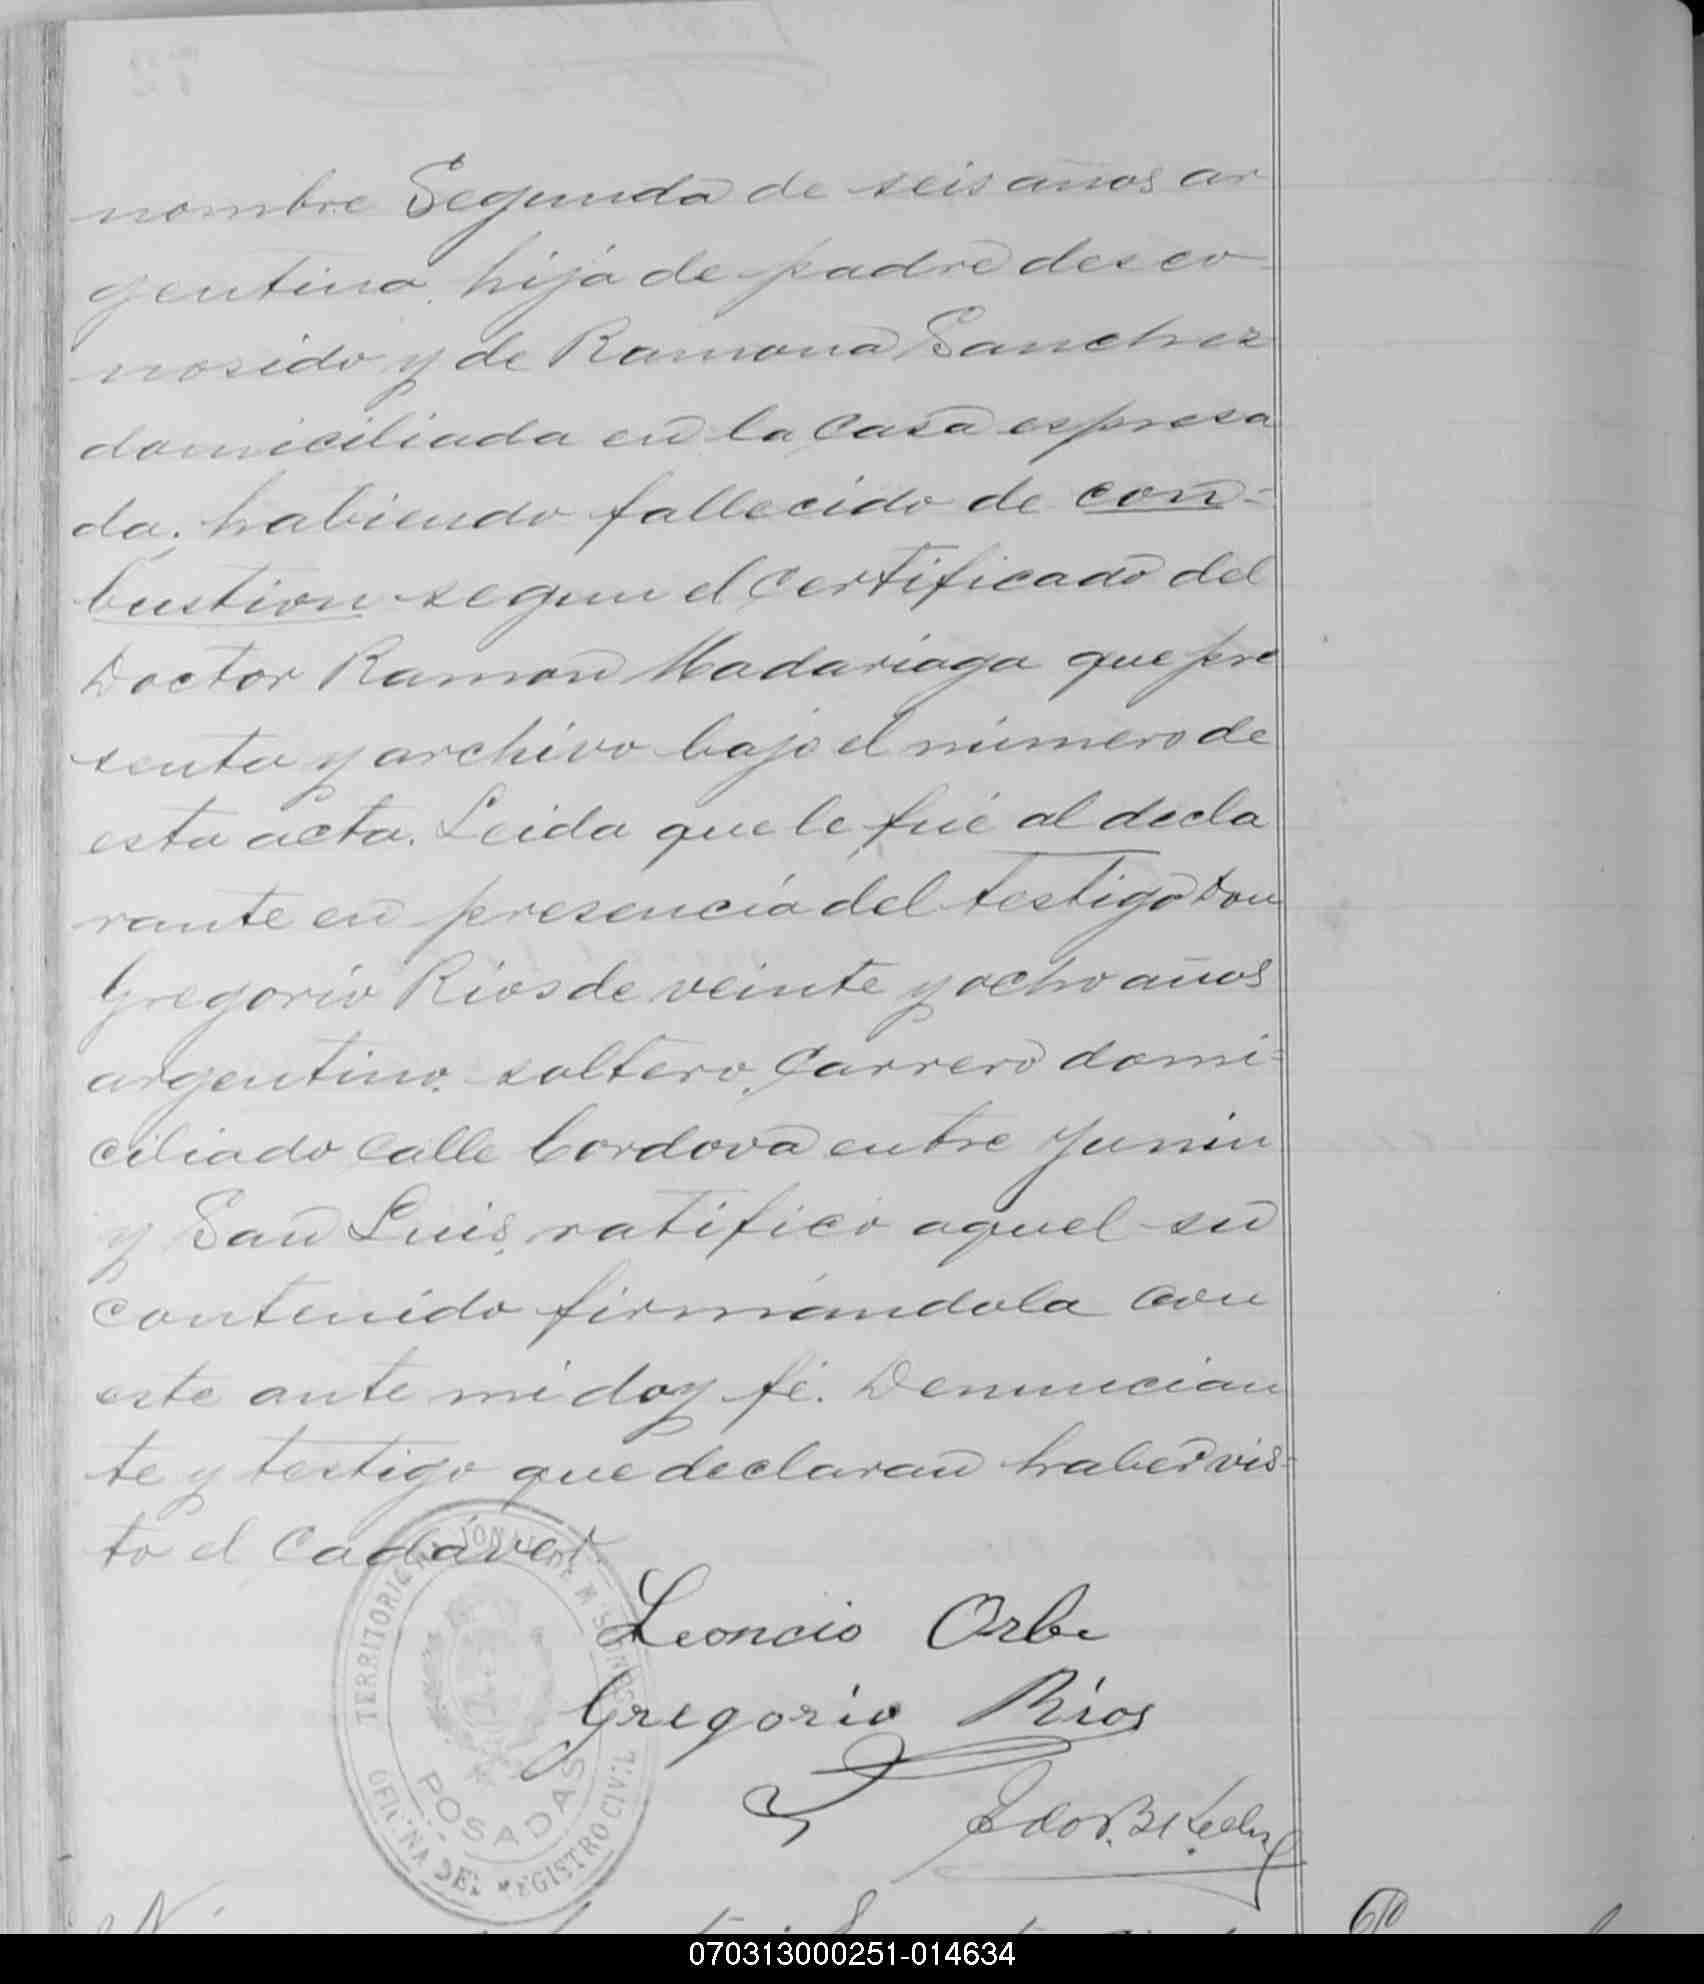 nombre Segunda de seis años ar
gentina, hija de padre desco
nosido y de Ramona Sanchez
domiciliada en la casa espresa
da; habiendo fallecido de con-
bustion segun el certificado del
Doctor Ramon Madariaga que pre
senta y archivo bajo el número de
esta acta. Leida que le fué al decla
rante en presencia del testigo Don
Gregorio Rios de veinte y ocho años
argentino, soltero, carrero domi-
ciliado calle Cordova entre Junin
y San Luis, ratificó aquel su
contenido firmándola con
este ante mi doy fé. Denuncian
te y testigo que declaran haber vis-
to el cadáver.
Leoncio Orbe
Gregorio Rios
TERRITORIO NACIONAL DE MISIONES
POSADAS
OFICINA DEL REGISTRO CIVIL
070313000251-014634